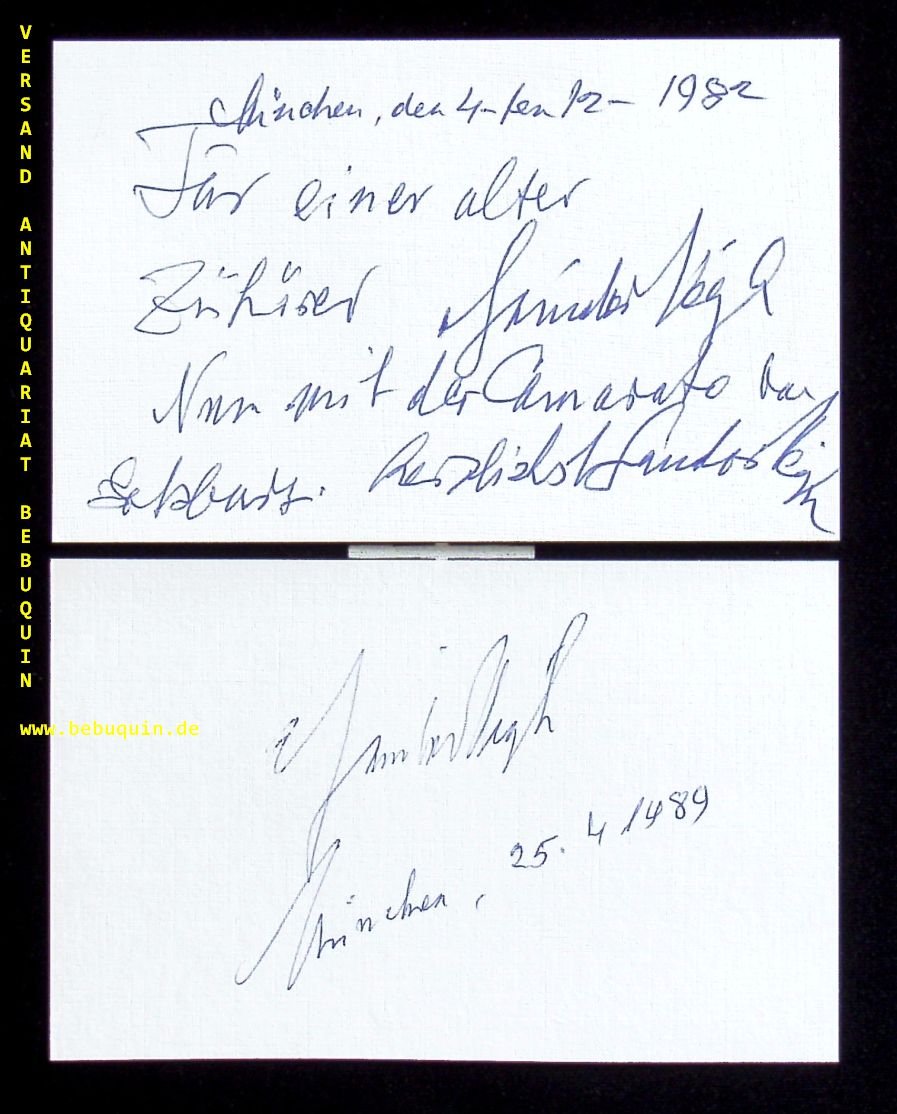 VERSAND ANTIQUARIAT BEBUQUIN
www.bebuquin.de
München, den 4-ten 12- 1982
Für einer alter
Zühörer Sándor Végh
Nun mit der Camarata von
Salzburg. Herzlichst Sandor Végh
Sándor Végh
München, 25. 4 1989